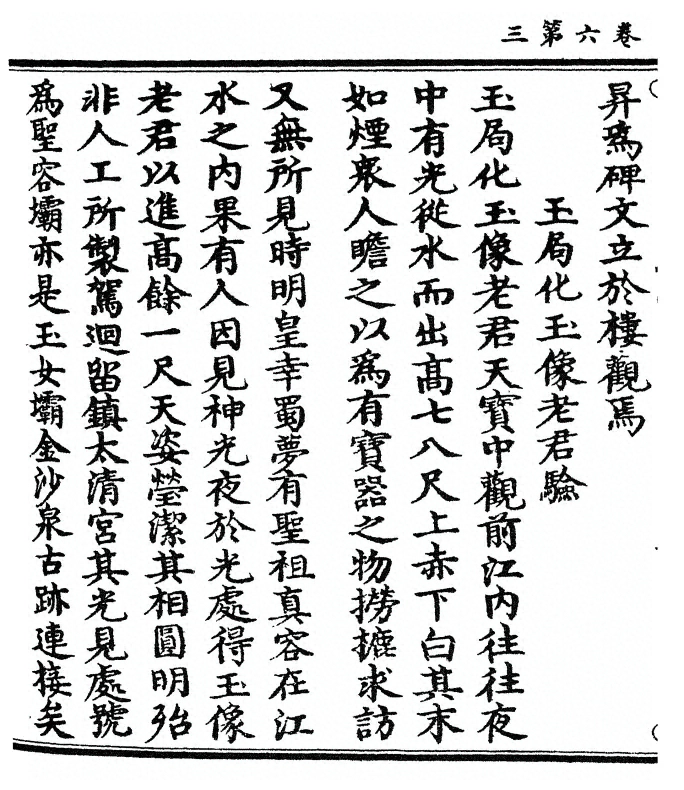 卷六第三
昇焉碑文立於樓觀焉
玉局化玉像老君驗
玉局化玉像老君天寶中觀前江內往往夜
中有光從水而出高七八尺上赤下白其末
如煙衆人瞻之以爲有寶器之物撈摝求訪
又無所見時明皇幸蜀夢有聖祖真容在江
水之內果有人因見神光夜於光處得玉像
老君以進高餘一尺天姿瑩潔其相圓明殆
非人工所製駕迴留鎮太清宮其光見處號
爲聖容壩亦是玉女壩金沙泉古跡連接矣